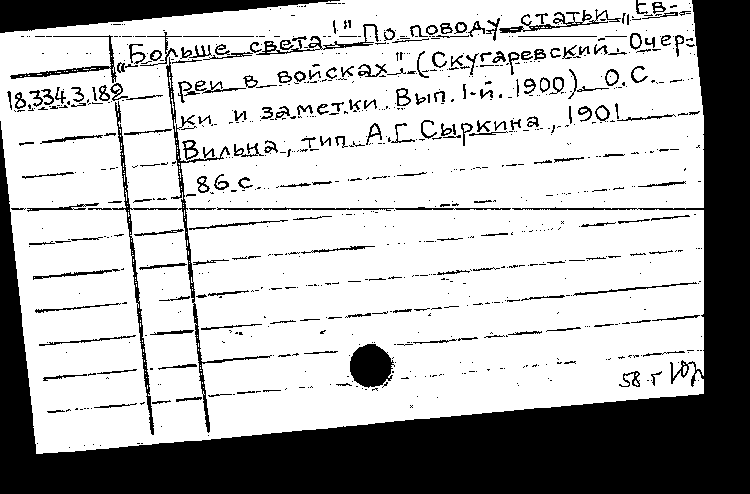 „Больше света!" По поводу статьи „Ев-
18.334.3.189
реи в войсках". (Скугаревский. Очер-
ки и заметки. Вып. 1-й. 1900). О.С.
Вильна, тип. А.Г. Сыркина, 1901.
86 с.
58 г